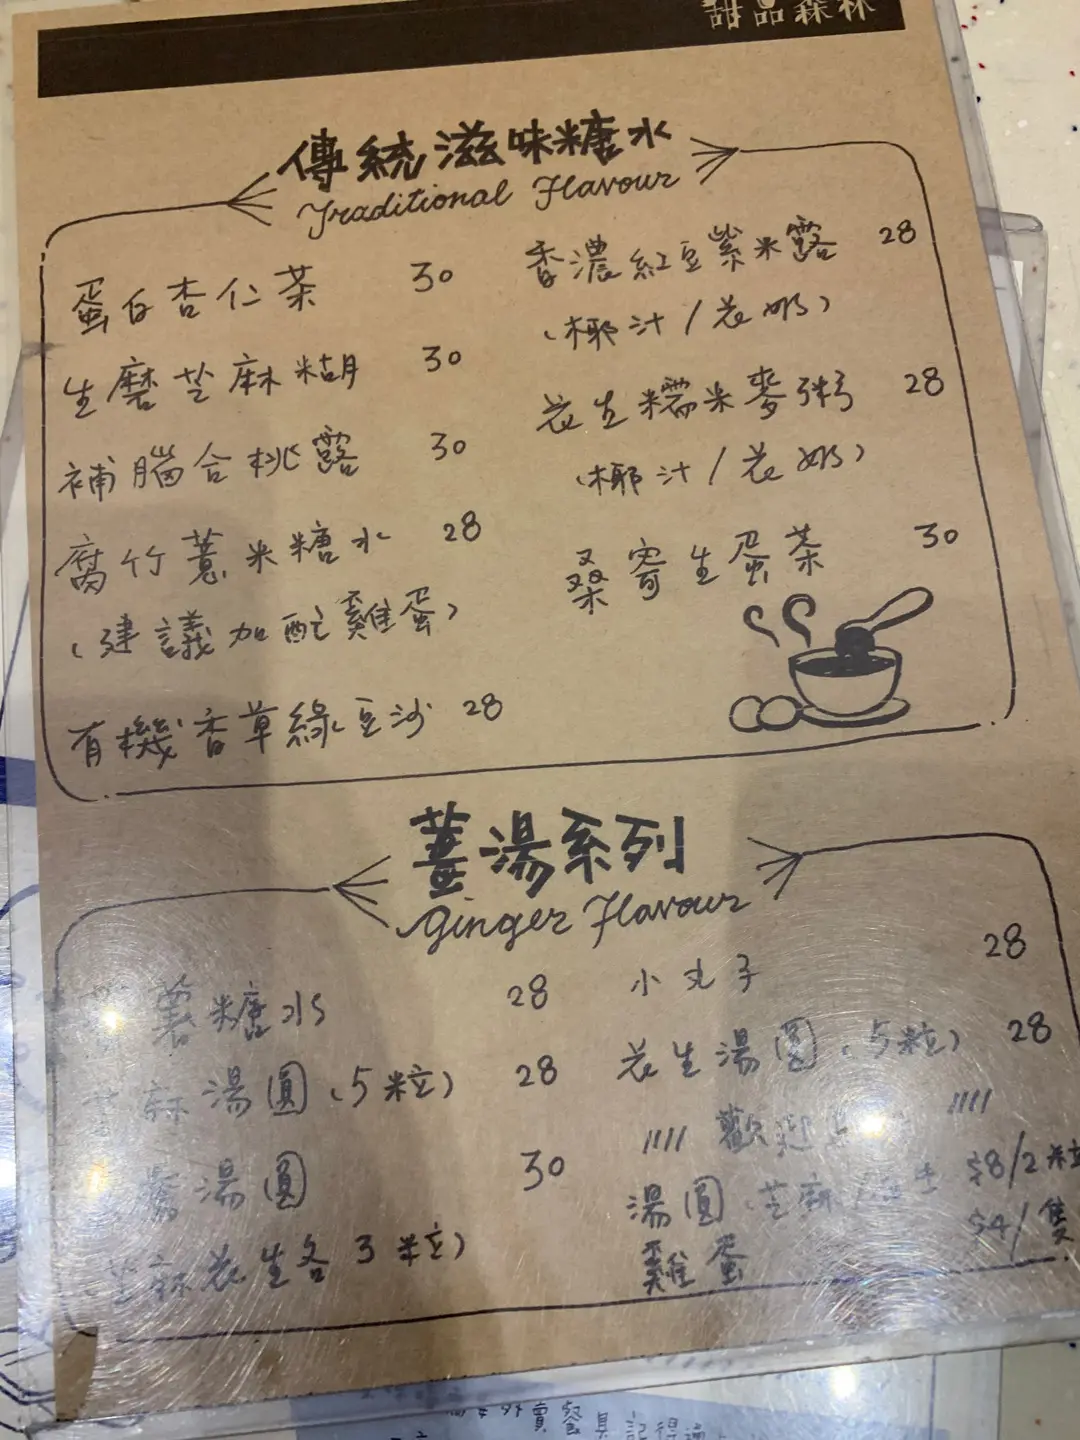 甜品森林
傳統滋味糖水
Traditional Flavour
蛋白杏仁茶 30
生磨芝麻糊 30
補腦合桃露 30
腐竹薏米糖水 28
(建議加配雞蛋)
有機香草綠豆沙 28
香濃紅豆紫米露 28
(椰汁/花奶)
花生糯米麥粥 28
(椰汁/花奶)
桑寄生蛋茶 30
薑湯系列
Ginger Flavour
薯糖水 28
芝麻湯圓(5粒) 28
湯圓 30
芝麻花生各3粒)
小丸子 28
花生湯圓(5粒) 28
//// 歡迎 ////
湯圓(芝麻/ $8/2粒
雞蛋 $4/隻
外賣餐具記得